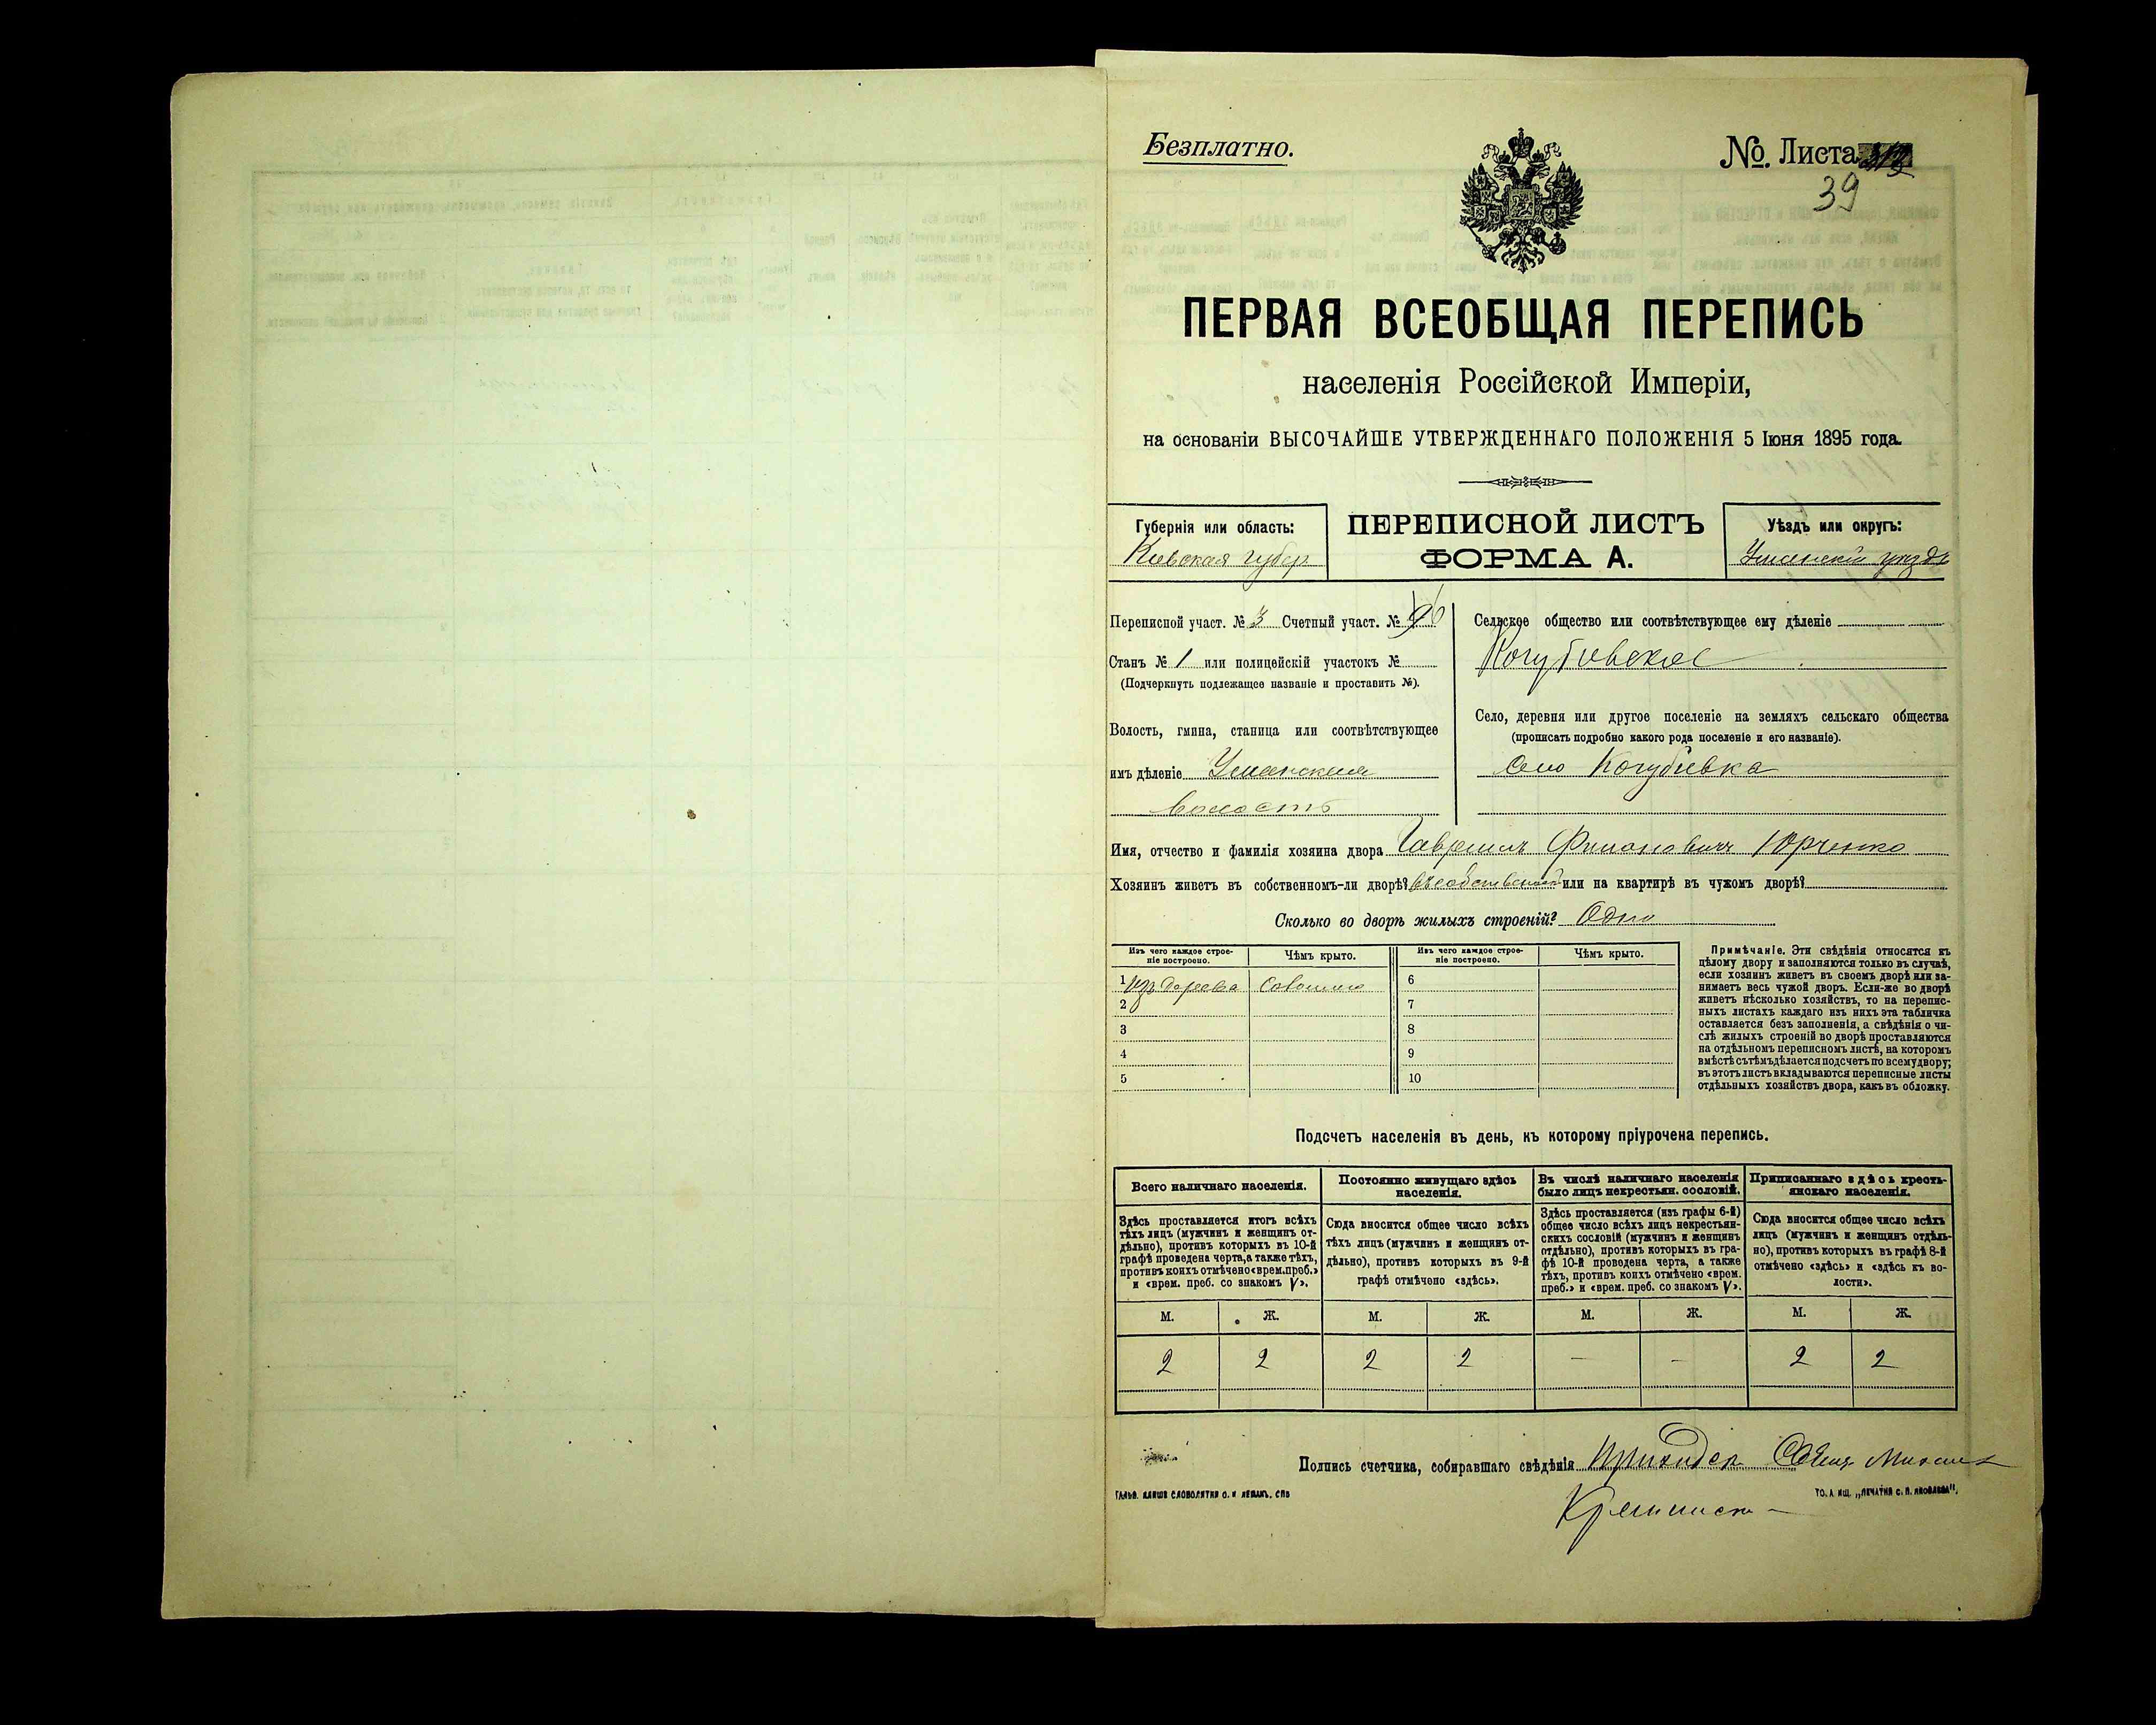 Безплатно.
№. Листа
39
ПЕРВАЯ ВСЕОБЩАЯ ПЕРЕПИСЬ
населенія Россійской Имперіи,
на основаніи ВЫСОЧАЙШЕ УТВЕРЖДЕННАГО ПОЛОЖЕНІЯ 5 Іюня 1895 года.
Губернія или область:
Кіевская губер
ПЕРЕПИСНОЙ ЛИСТЪ
ФОРМА А.
Уѣздъ или округъ:
Уманскій уѣздъ
Переписной участ. № 3 Счетный участ. №
Станъ № 1 или полицейскій участокъ №
(Подчеркнуть подлежащее названіе и проставить №).
Волость, гмина, станица или соотвѣтствующее
имъ дѣленіе Уманская
волость
Сельское общество или соотвѣтствующее ему дѣленіе
Когубіевское
Село, деревня или другое поселеніе на земляхъ сельскаго общества
(прописать подробно какого рода поселеніе и его названіе).
село Когубіевка
Имя, отчество и фамилія хозяина двора Гавріилъ Филоновичъ Юрченко
Хозяинъ живетъ въ собственномъ-ли дворѣ? въ собственной или на квартирѣ въ чужомъ дворѣ?
Сколько во дворѣ жилыхъ строеній? Одно
Изъ чего каждое строе-
ніе построено.
Чѣмъ крыто.
Изъ чего каждое строе-
ніе построено.
Чѣмъ крыто.
1 Изъ дерева Соломою 6
2 7
3 8
4 9
5 10
Примѣчаніе. Эти свѣдѣнія относятся къ
цѣлому двору и заполняются только въ случаѣ,
если хозяинъ живетъ въ своемъ дворѣ или за-
нимаетъ весь чужой дворъ. Если-же во дворѣ
живетъ нѣсколько хозяйствъ, то на перепис-
ныхъ листахъ каждаго изъ нихъ эта табличка
оставляется безъ заполненія, а свѣдѣнія о чи-
слѣ жилыхъ строеній во дворѣ проставляются
на отдѣльномъ переписномъ листѣ, на которомъ
вмѣстѣ съ тѣмъ дѣлается подсчетъ по всему двору;
въ этотъ листъ вкладываются переписные листы
отдѣльныхъ хозяйствъ двора, какъ въ обложку.
Подсчетъ населенія въ день, къ которому пріурочена перепись.
Всего наличнаго населенія.
Здѣсь проставляется итогъ всѣхъ
тѣхъ лицъ (мужчинъ и женщинъ от-
дѣльно), противъ которыхъ въ 10-й
графѣ проведена черта, а также тѣхъ,
противъ коихъ отмѣчено «врем. преб.»
и «врем. преб. со знакомъ V».
Постоянно живущаго здѣсь
населенія.
Сюда вносится общее число всѣхъ
тѣхъ лицъ (мужчинъ и женщинъ от-
дѣльно), противъ которыхъ въ 9-й
графѣ отмѣчено «здѣсь».
Въ числѣ наличнаго населенія
было лицъ некрестьян. сословій.
Здѣсь проставляется (изъ графы 6-й)
общее число всѣхъ лицъ некрестьян-
скихъ сословій (мужчинъ и женщинъ
отдѣльно), противъ которыхъ въ гра-
фѣ 10-й проведена черта, а также
тѣхъ, противъ коихъ отмѣчено «врем.
преб.» и «врем. преб. со знакомъ V».
Приписаннаго здѣсь кресть-
янскаго населенія.
Сюда вносится общее число всѣхъ
лицъ (мужчинъ и женщинъ отдѣль-
но), противъ которыхъ въ графѣ 8-й
отмѣчено «здѣсь» и «здѣсь къ во-
лости».
М. Ж. М. Ж. М. Ж. М. Ж.
2 2 2 2 — — 2 2
Подпись счетчика, собиравшаго свѣдѣнія
ГАЛЬВ. КЛИШЕ СЛОВОЛИТНИ О. И. ЛЕМАНЪ, СПБ
ТО. А. ИЩ. „ПЕЧАТНЯ С. П. ЯКОВЛЕВА".